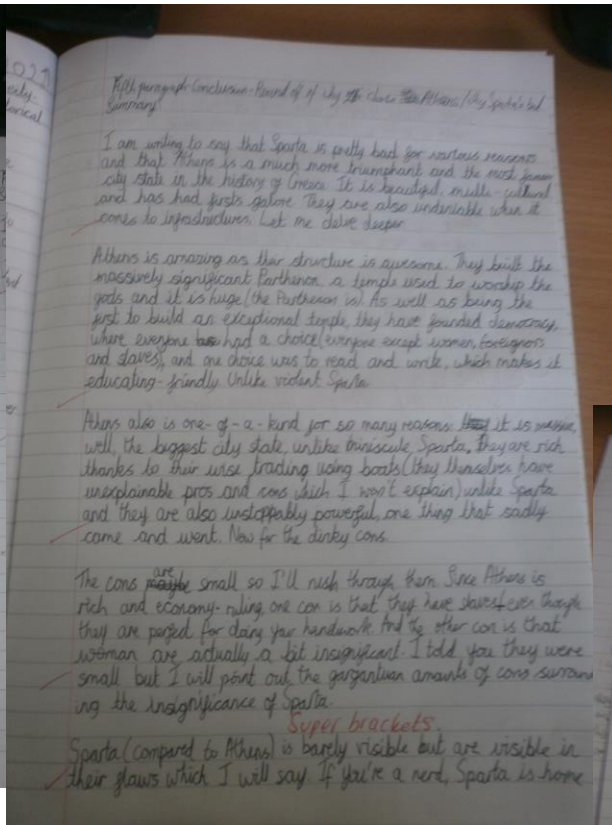 2021
Fifth paragraph Conclusion - Round of of why Athens / why Sparta's bad
Summary
I am writing to say that Sparta is pretty bad for various reasons
and that Athens is a much more triumphant and the most famous
city state in the history of Greece. It is beautiful, multi-cultural
and has had firsts galore. They are also undeniable when it
comes to infrastructures. Let me delve deeper.
Athens is amazing as their structure is awesome. They built the
massively significant Parthenon, a temple used to worship the
gods and it is huge (the Parthenon is). As well as being the
first to build an exceptional temple, they have founded democracy,
where everyone had a choice (everyone except women, foreigners
and slaves), and one choice was to read and write, which makes it
educating-friendly. Unlike violent Sparta.
Athens also is one-of-a-kind for so many reasons: it is massive,
well, the biggest city state, unlike miniscule Sparta. They are rich
thanks to their wise trading using boats (they themselves have
unexplainable pros and cons which I won't explain) unlike Sparta
and they are also unstoppably powerful, one thing that sadly
came and went. Now for the dinky cons.
The cons are small so I'll rush through them. Since Athens is
rich and economy-ruling one con is that they have slaves even though
they are perfect for doing your handwork. And the other con is that
woman are actually a bit insignificant. I told you they were
small but I will point out the gargantuan amounts of cons surround
ing the insignificance of Sparta.
Super brackets.
Sparta (compared to Athens) is barely visible but are visible in
their flaws which I will say. If you're a nerd, Sparta is home